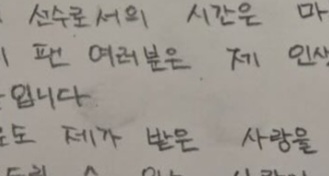 선수로서의 시간은 마
팬 여러분은 제 인생
입니다
도 제가 받은 사랑을